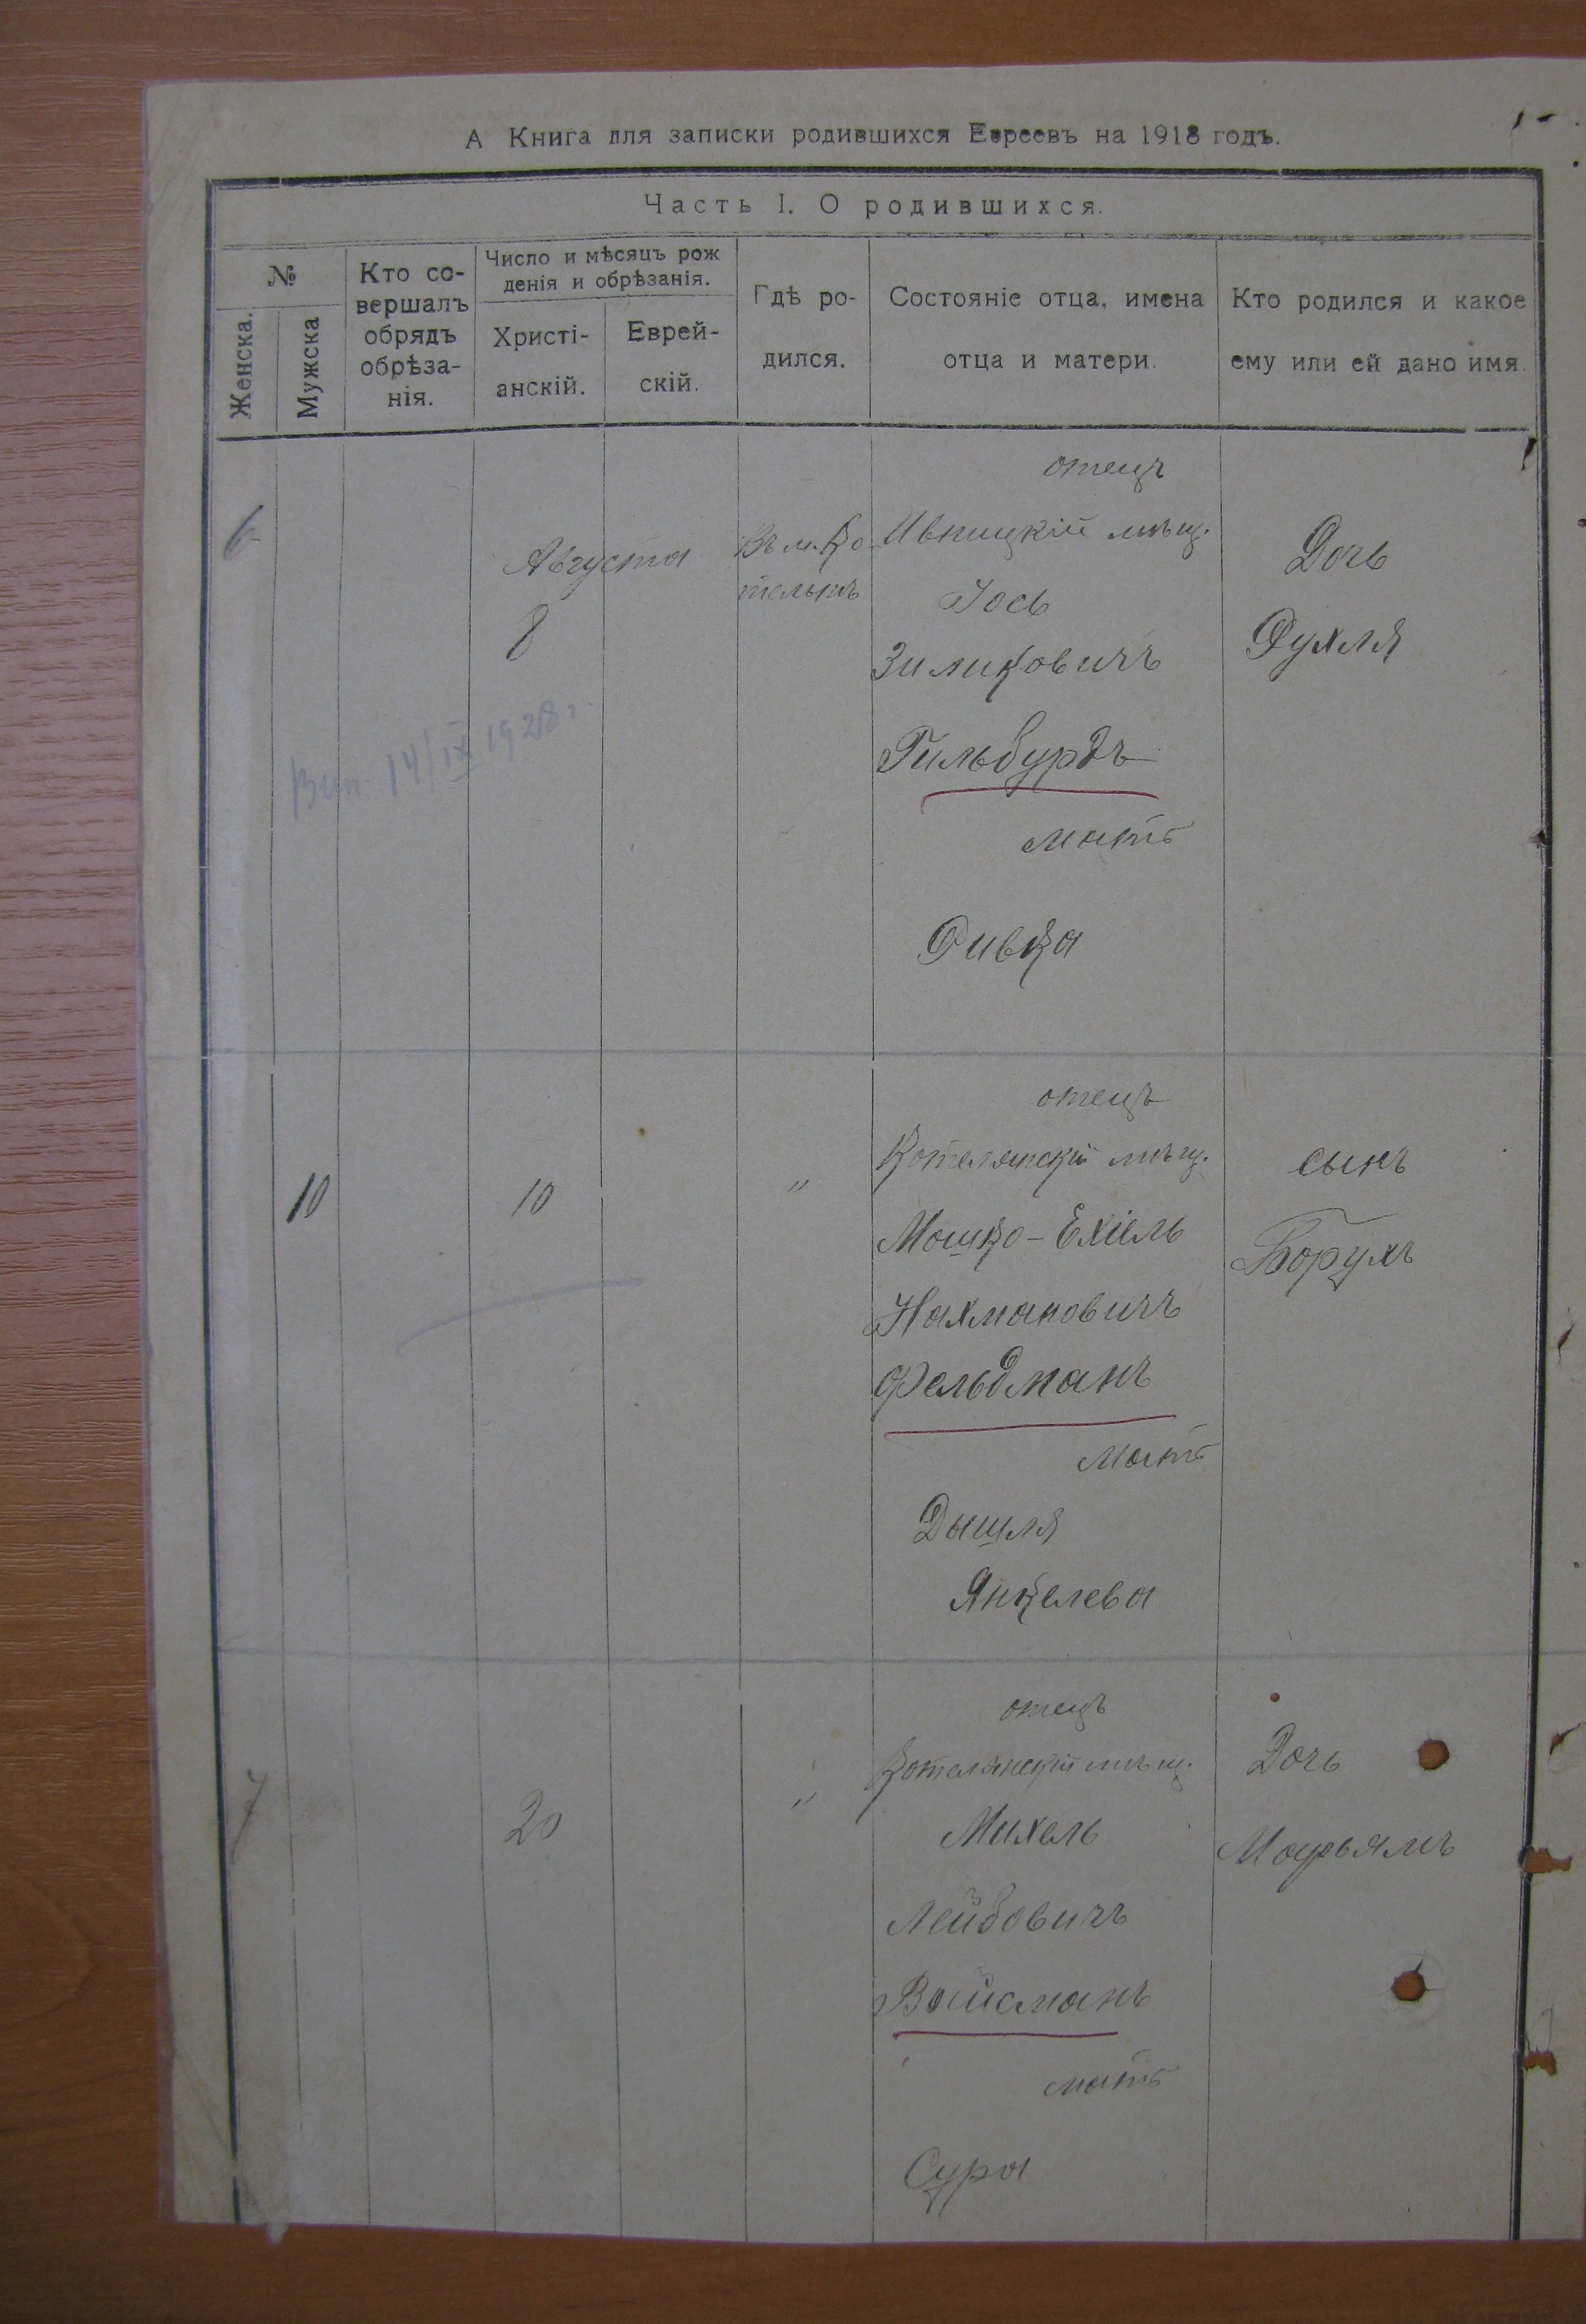 А Книга для записки родившихся Евреевъ на 1918 годъ.
Часть I. О родившихся.
№
Женска.
Мужска
Кто со-
вершалъ
обрядъ
обрѣза-
нія.
Число и мѣсяцъ рож
денія и обрѣзанія.
Христі-
анскій.
Еврей-
скій.
Гдѣ ро-
дился.
Состояніе отца, имена
отца и матери.
Кто родился и какое
ему или ей дано имя.
6
Августа
8
Въ м. Ко
тельнѣ
отецъ
Ивницкій мѣщ.
Іось
Зиликовичъ
Гильбурдъ
мать
Ривка
Дочь
Рухля
14/IX 1928 г.
10
10
"
отецъ
Котелянскій мѣщ.
Мошко-Ехіель
Нахмановичъ
Фельдманъ
мать
Дышля
Янкелева
сынъ
Борухъ
7
20
"
отецъ
Котелянскій мѣщ.
Михель
Лейбовичъ
Вайсманъ
мать
Сура
Дочь
Марьямъ